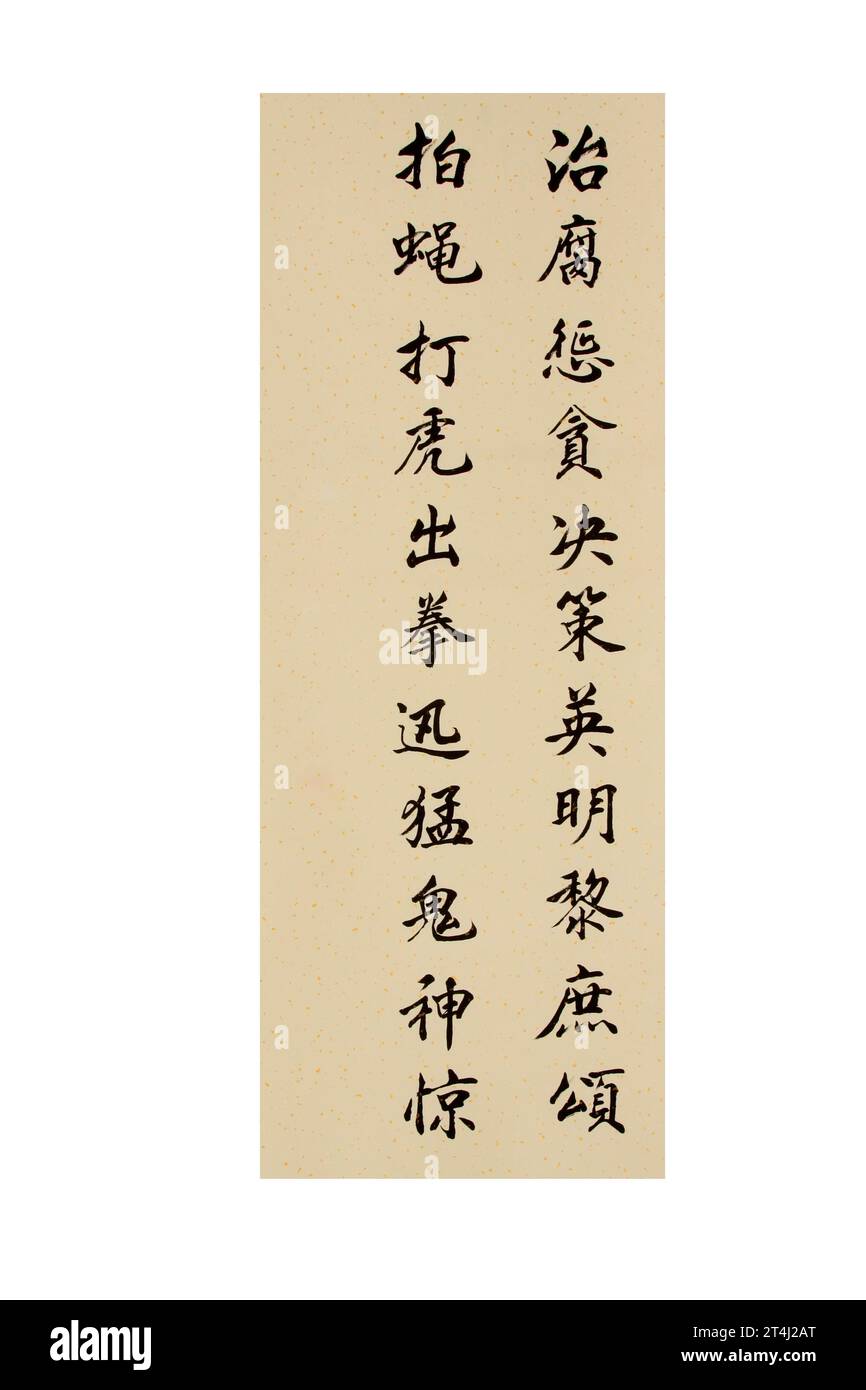 治腐惩贪决策英明黎庶頌
拍蝇打虎出拳迅猛鬼神惊
a
a
a
a
alamy
a
a
a
a
alamy
Image ID: 2T4J2AT
www.alamy.com